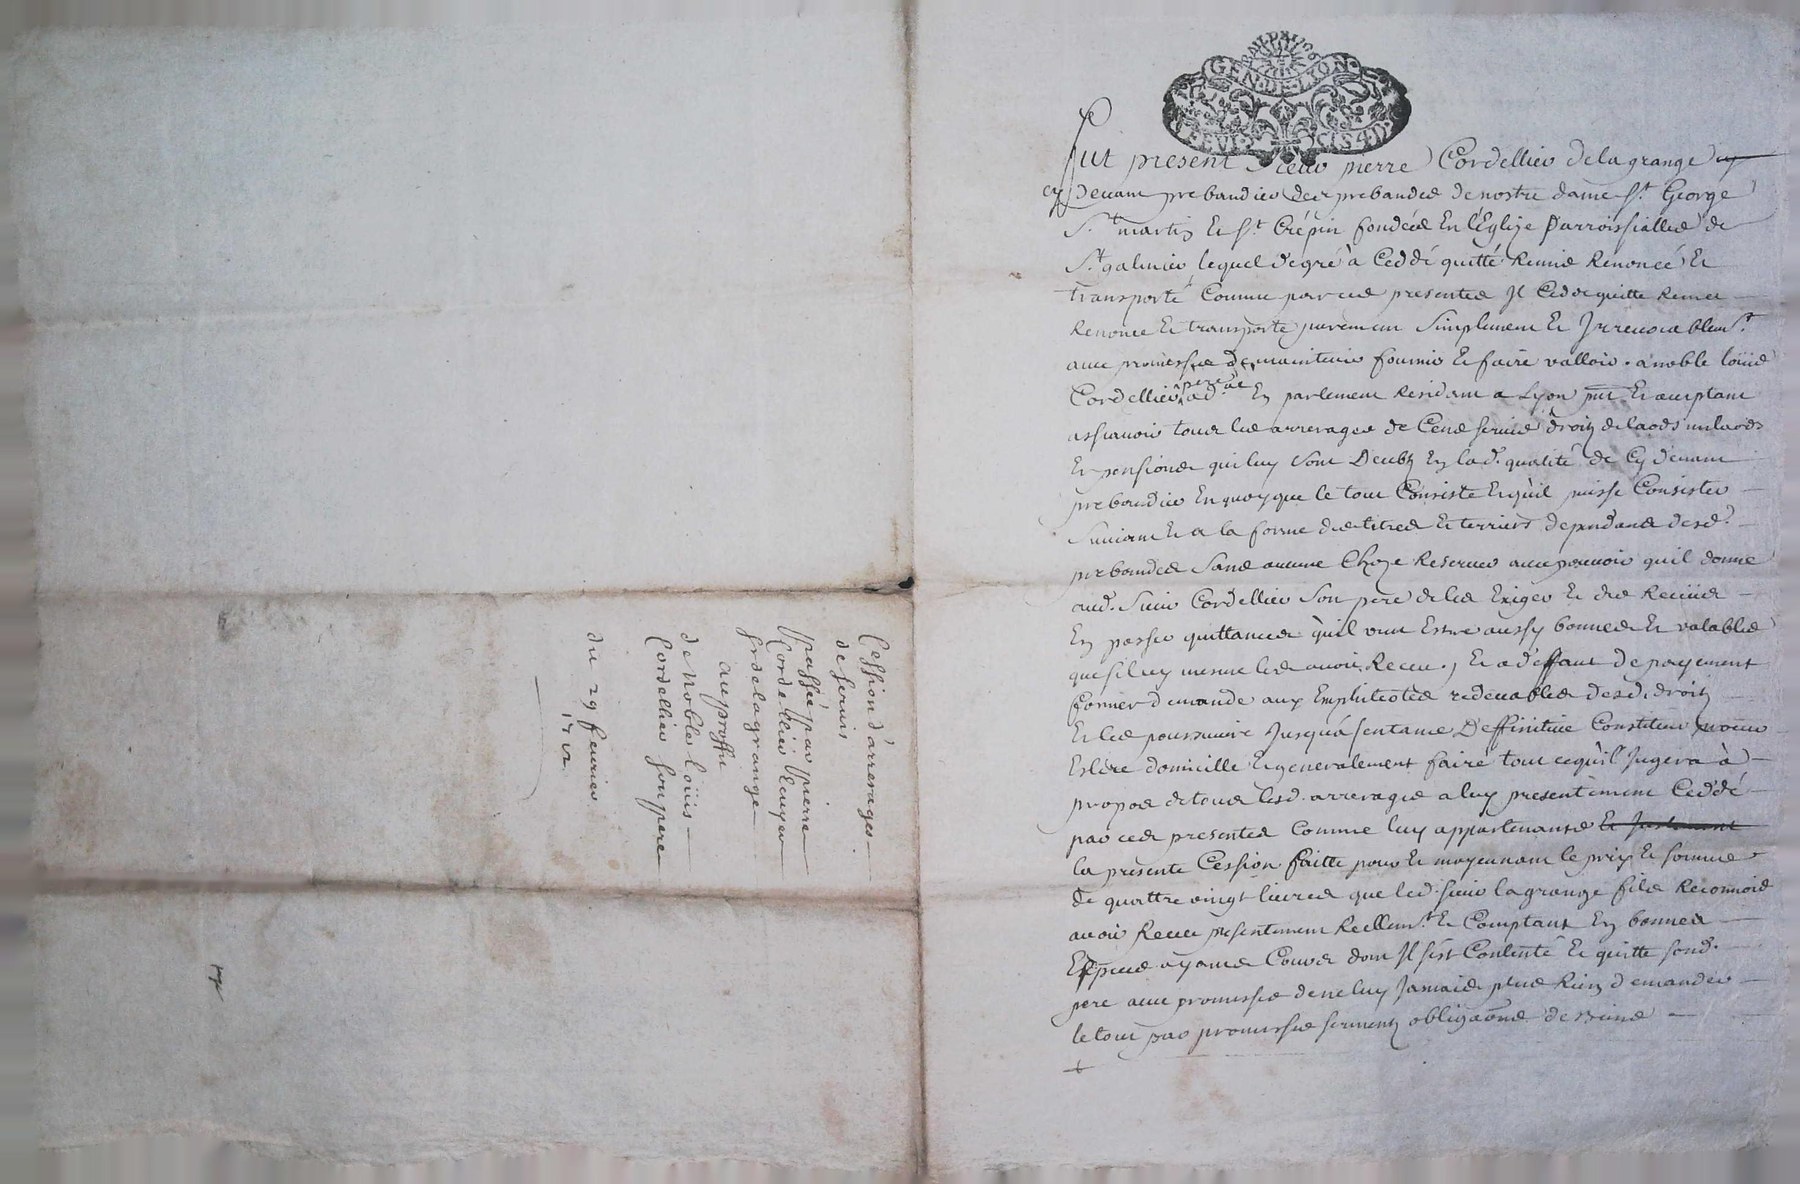 Cession d'arrerages
de servis
passée par Pierre
Cordellier Ecuyer
sr delagrange
au proffit
de Noble loüis
Cordellier son pere
du 29 fevrier
1712
GEN·DE·LYON
Fut present Sieur pierre Cordellier delagrange cy
cy devant prebandier des prebandes de nostre dame st. George
St. martin et st. Crépin fondées En l'Eglize parroissialles de
St. galmier lequel de gré à Ceddé quitté Remis Renoncé Et
transporté Comme par ces presentes Il Cedde quitte Remet
Renonce Et transporte purement Simplement Et Irrevocablemt.
avec promesse de maintenir fournir Et faire valloir. a noble loüis
Cordellier pere ad.at En parlement Residant a Lyon pnt Et acceptant
assavoir tous les arrerages de Cens servis droitz de laods milaods
Et pensions qui luy sont Deubz En lad. qualité de Cy devant
prebandier En quoy que le tout Consiste Et qu'il puisse Consister
Suivant Et a la forme des titres Et terriers dependans desd.
prebandes sans aucune Choze Reserver avec pouvoir qu'il donne
aud. Sieur Cordellier Son pere de les Exiger Et des Receüs
En passer quittances qu'il veut Estre aussy bonnes Et valables
que si luy mesme les avoit Receu, Et a deffaut de payement
former demande aux Emphiteotes redevables desd. droitz
Et les poursuivre Jusqu'á sentance Deffinitive Constituer
Eslire domicille Et generalement faire tout ce qu'il Jugera à
propos de tous lesd. arrerages a luy presentement Ceddé
par ces presentes Comme luy appartenants Et Justement
la presente Cession faitte pour Et moyennant le prix Et somme
de quattre vingt livres que led. sieur lagrange fils Reconnoit
avoir Receu presentement Reellemt. Et Comptant En bonnes
Especes ayants Cours dont Il s'est Contenté Et quitte sond.
pere avec promesse de ne luy Jamais plus Rien demander
le tout par promesses serment obligaons de biens